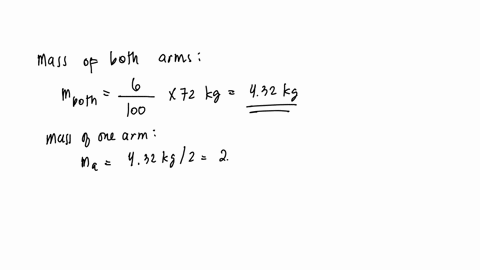 Mass of both arms:
m_both = 6/100 × 72 kg = 4.32 kg
Mass of one arm:
m_a = 4.32 kg / 2 = 2.